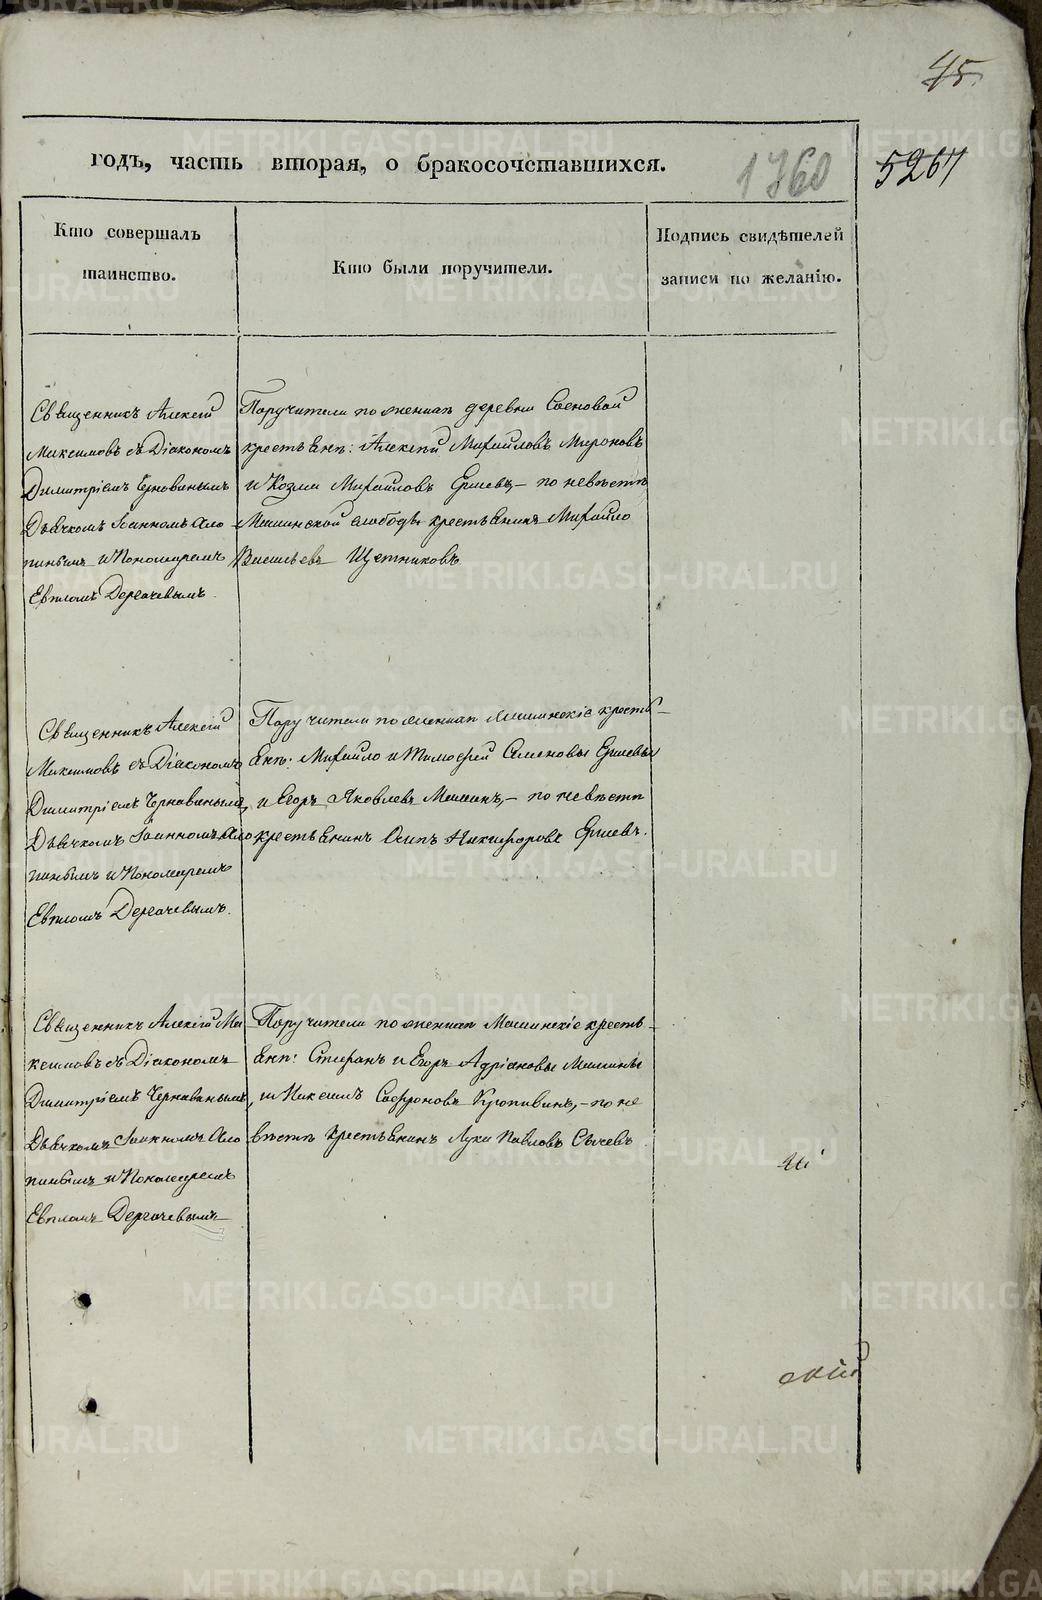 45.
годъ, часть вторая, о бракосочетавшихся.
1760
5267
Кто совершалъ
таинство.
Кто были поручители.
Подпись свидѣтелей
записи по желанію.
Священникъ Алексій
Максимовъ съ Діакономъ
Димитріемъ Чернавинымъ
Дьячкомъ Іоанномъ Ало
пинымъ и Пономаремъ
Евпломъ Дергачевымъ.
Поручители по женихѣ деревни Сосновой
крестьяне: Алексѣй Михайловъ Мироновъ
и Козма Михайловъ Ершевъ, – по невѣстѣ
слободы крестьянинъ Михайло
Васильевъ Щетниковъ
Священникъ Алексій
Максимовъ съ Діакономъ
Димитріемъ Чернавинымъ,
Дьячкомъ Іоанномъ Ало
пинымъ и Пономаремъ
Евпломъ Дергачевымъ.
Поручители по женихѣ крестъ-
яне: Михайло и Тимофей Семеновы Ершевы
и Егоръ Яковлевъ Мамынъ, – по невѣстѣ
крестьянинъ Осипъ Никифоровъ Ершевъ.
Священникъ Алексій Ма
ксимовъ съ Діакономъ
Димитріемъ Чернавинымъ,
Дьячкомъ Іоанномъ Ало
пинымъ и Пономаремъ
Евпломъ Дергачевымъ
Поручители по женихѣ крестъ-
яне: Стефанъ и Егоръ Адріановы
и Максимъ Софроновъ Кропивинъ, – по не
вѣстѣ крестьянинъ Лука Павловъ Сычевъ
скій
METRIKI.GASO-URAL.RU